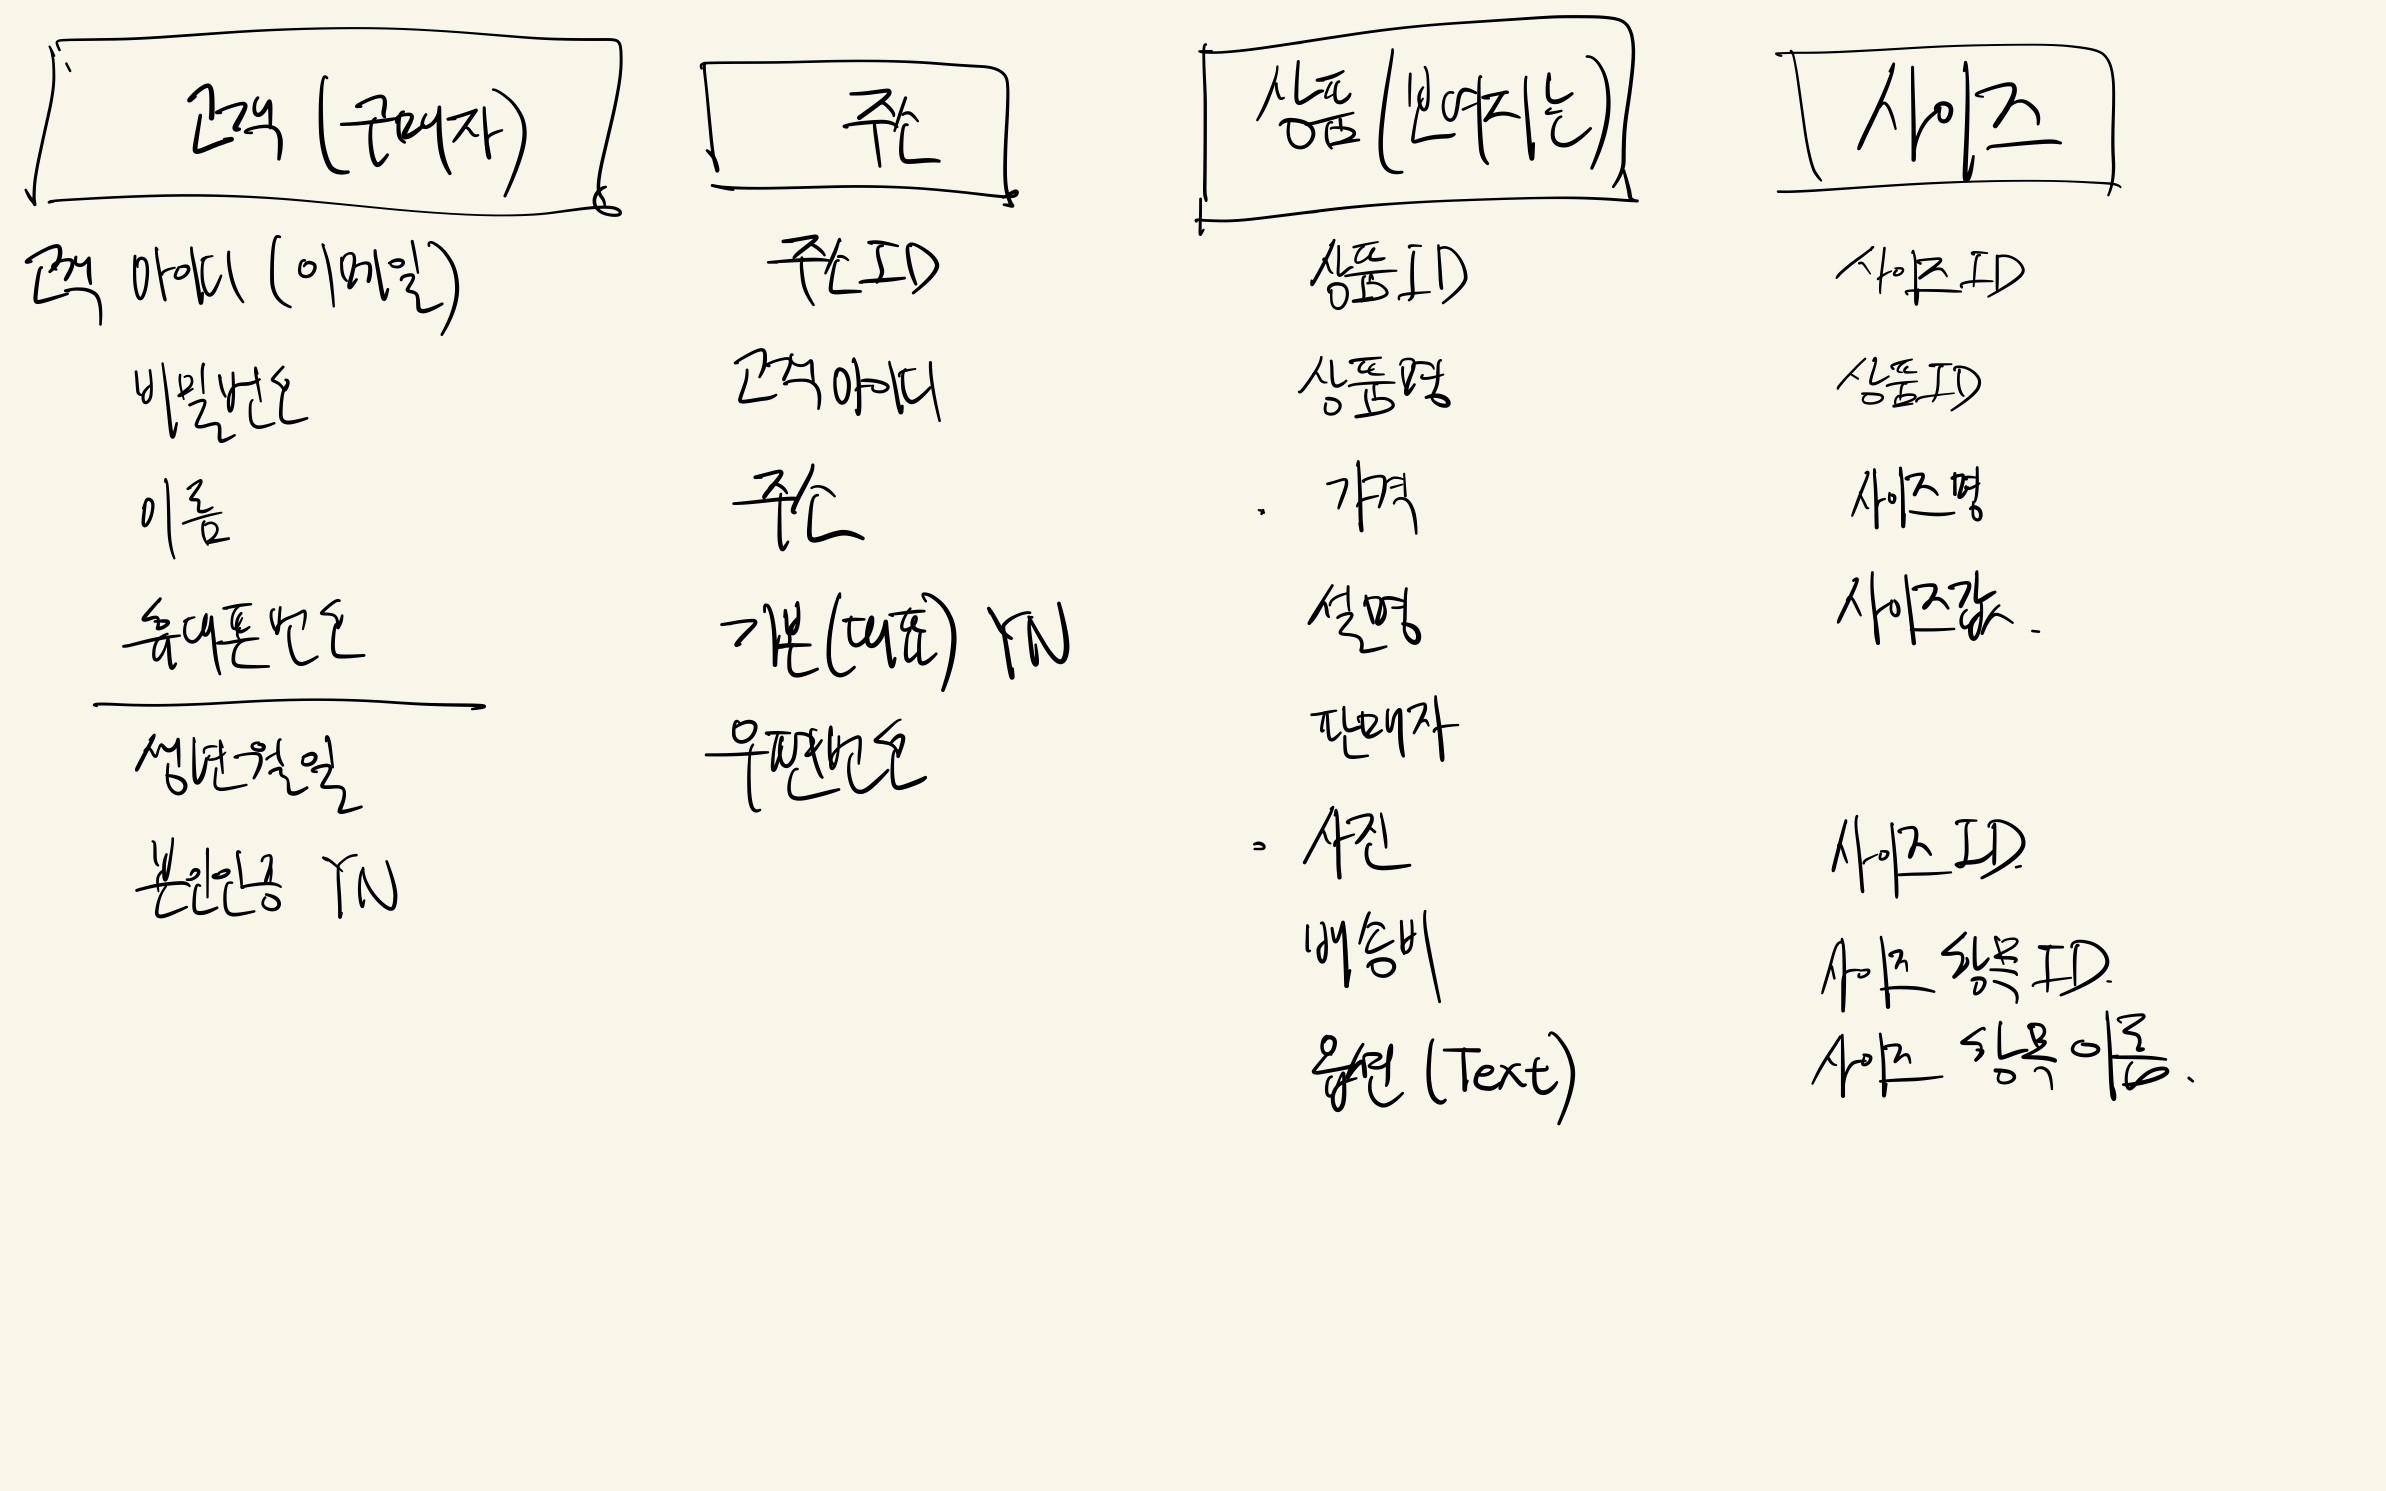 고객 (구매자)
고객 아이디 (이메일)
비밀번호
이름
휴대폰번호
생년월일
본인인증 YN
주소
주소ID
고객아이디
주소
기본(대표) YN
우편번호
상품 (보여지는)
상품ID
상품명
가격
설명
판매자
사진
배송비
옵션 (Text)
사이즈
사이즈ID
상품ID
사이즈명
사이즈값.
사이즈ID.
사이즈 항목ID.
사이즈 항목 이름.